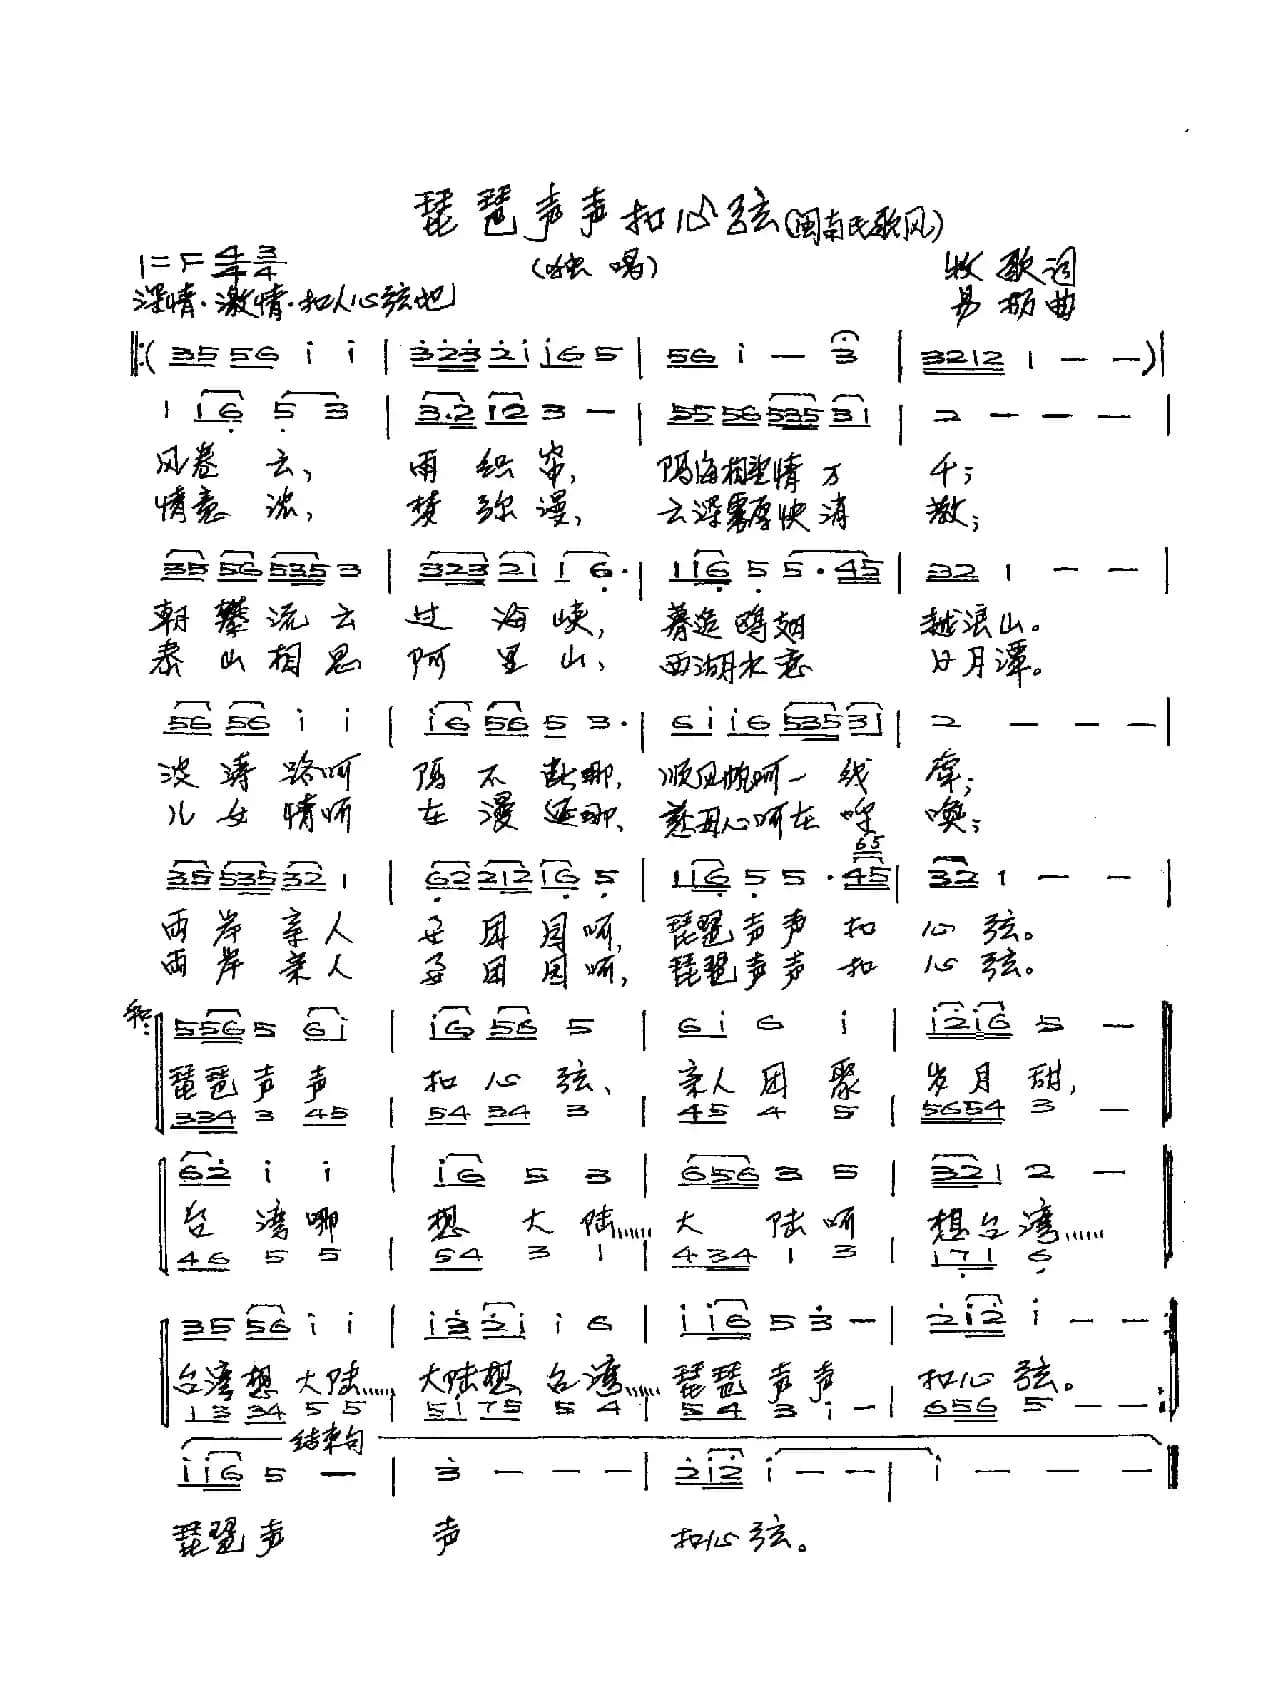 琵琶声声扣心弦(闽南民歌风)
1=F 4/4 3/4 (独唱) 牧歌词
深情·激情·扣人心弦地 易 曲
‖:( 35 56 i i | 323 21 i65 | 56 i — 3 | 3212 1 — — )|
1 16 5 3 | 3·2 12 3 — | 55 56 535 31 | 2 — — — |
风卷云, 雨织帘, 隔海相望情万千;
情意浓, 梦弥漫, 云深雾厚快消散;
35 56 535 3 | 323 21 1 6· | 116 5 5·45 | 32 1 — — |
朝攀流云过海峡, 暮造鸥翅越浪山。
泰山相思阿里山, 西湖水恋日月潭。
56 56 i i | i6 56 5 3· | 6i i6 535 31 | 2 — — — |
波涛路呵隔不断哪, 顺风帆呵一线牵;
儿女情呵在漫延哪, 慈母心呵在呼唤;
65
35 535 32 1 | 62 212 16 5 | 116 5 5·45 | 32 1 — — |
两岸亲人要团圆呵, 琵琶声声扣心弦。
两岸亲人要团圆呵, 琵琶声声扣心弦。
和: 556 5 6i | i6 56 5 | 6i 6 i | i2i6 5 — |
琵琶声声扣心弦、 亲人团聚岁月甜,
334 3 45 | 54 34 3 | 45 4 5 | 5654 3 — |
62 i i | i6 5 3 | 656 3 5 | 321 2 — |
台湾哪想大陆…… 大陆呵想台湾……
46 5 5 | 54 3 1 | 434 1 3 | 171 6
35 56 i i | i3 2i i 6 | i i6 5 3 — | 2i2 i — — :‖
台湾想大陆…… 大陆想台湾…… 琵琶声声扣心弦。
13 34 5 5 | 5i 75 5 4 | 54 3 i — | 656 5 — — :‖
结束句
i i6 5 — | 3 — — — | 2i2 i — — | i — — — ‖
琵琶声声扣心弦。